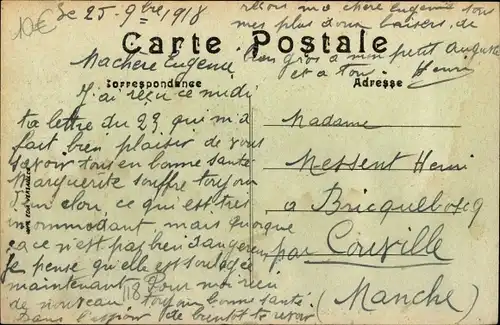 10€
Le 25-9bre 1918
Carte Postale
Ma chère Eugénie
Correspondance
J'ai reçu ce midi
ta lettre du 23 qui m'a
fait bien plaisir de vous
savoir tous en bonne santé
Marguerite souffre toujours
d'un clou, ce qui est très
incommodant mais quoique
ça ce n'est pas bien dangereux
je pense qu'elle est soulagée
maintenant Pour moi rien
de nouveau toujours bonne santé.
Dans l'espoir de bientôt te revoir
reçois ma chère Eugénie tous
mes plus doux baisers, de
gros à mon petit Auguste
et à toi Henri
Adresse
Madame
Messent Henri
à Bricqueboscq
par Couville
(Manche)
18